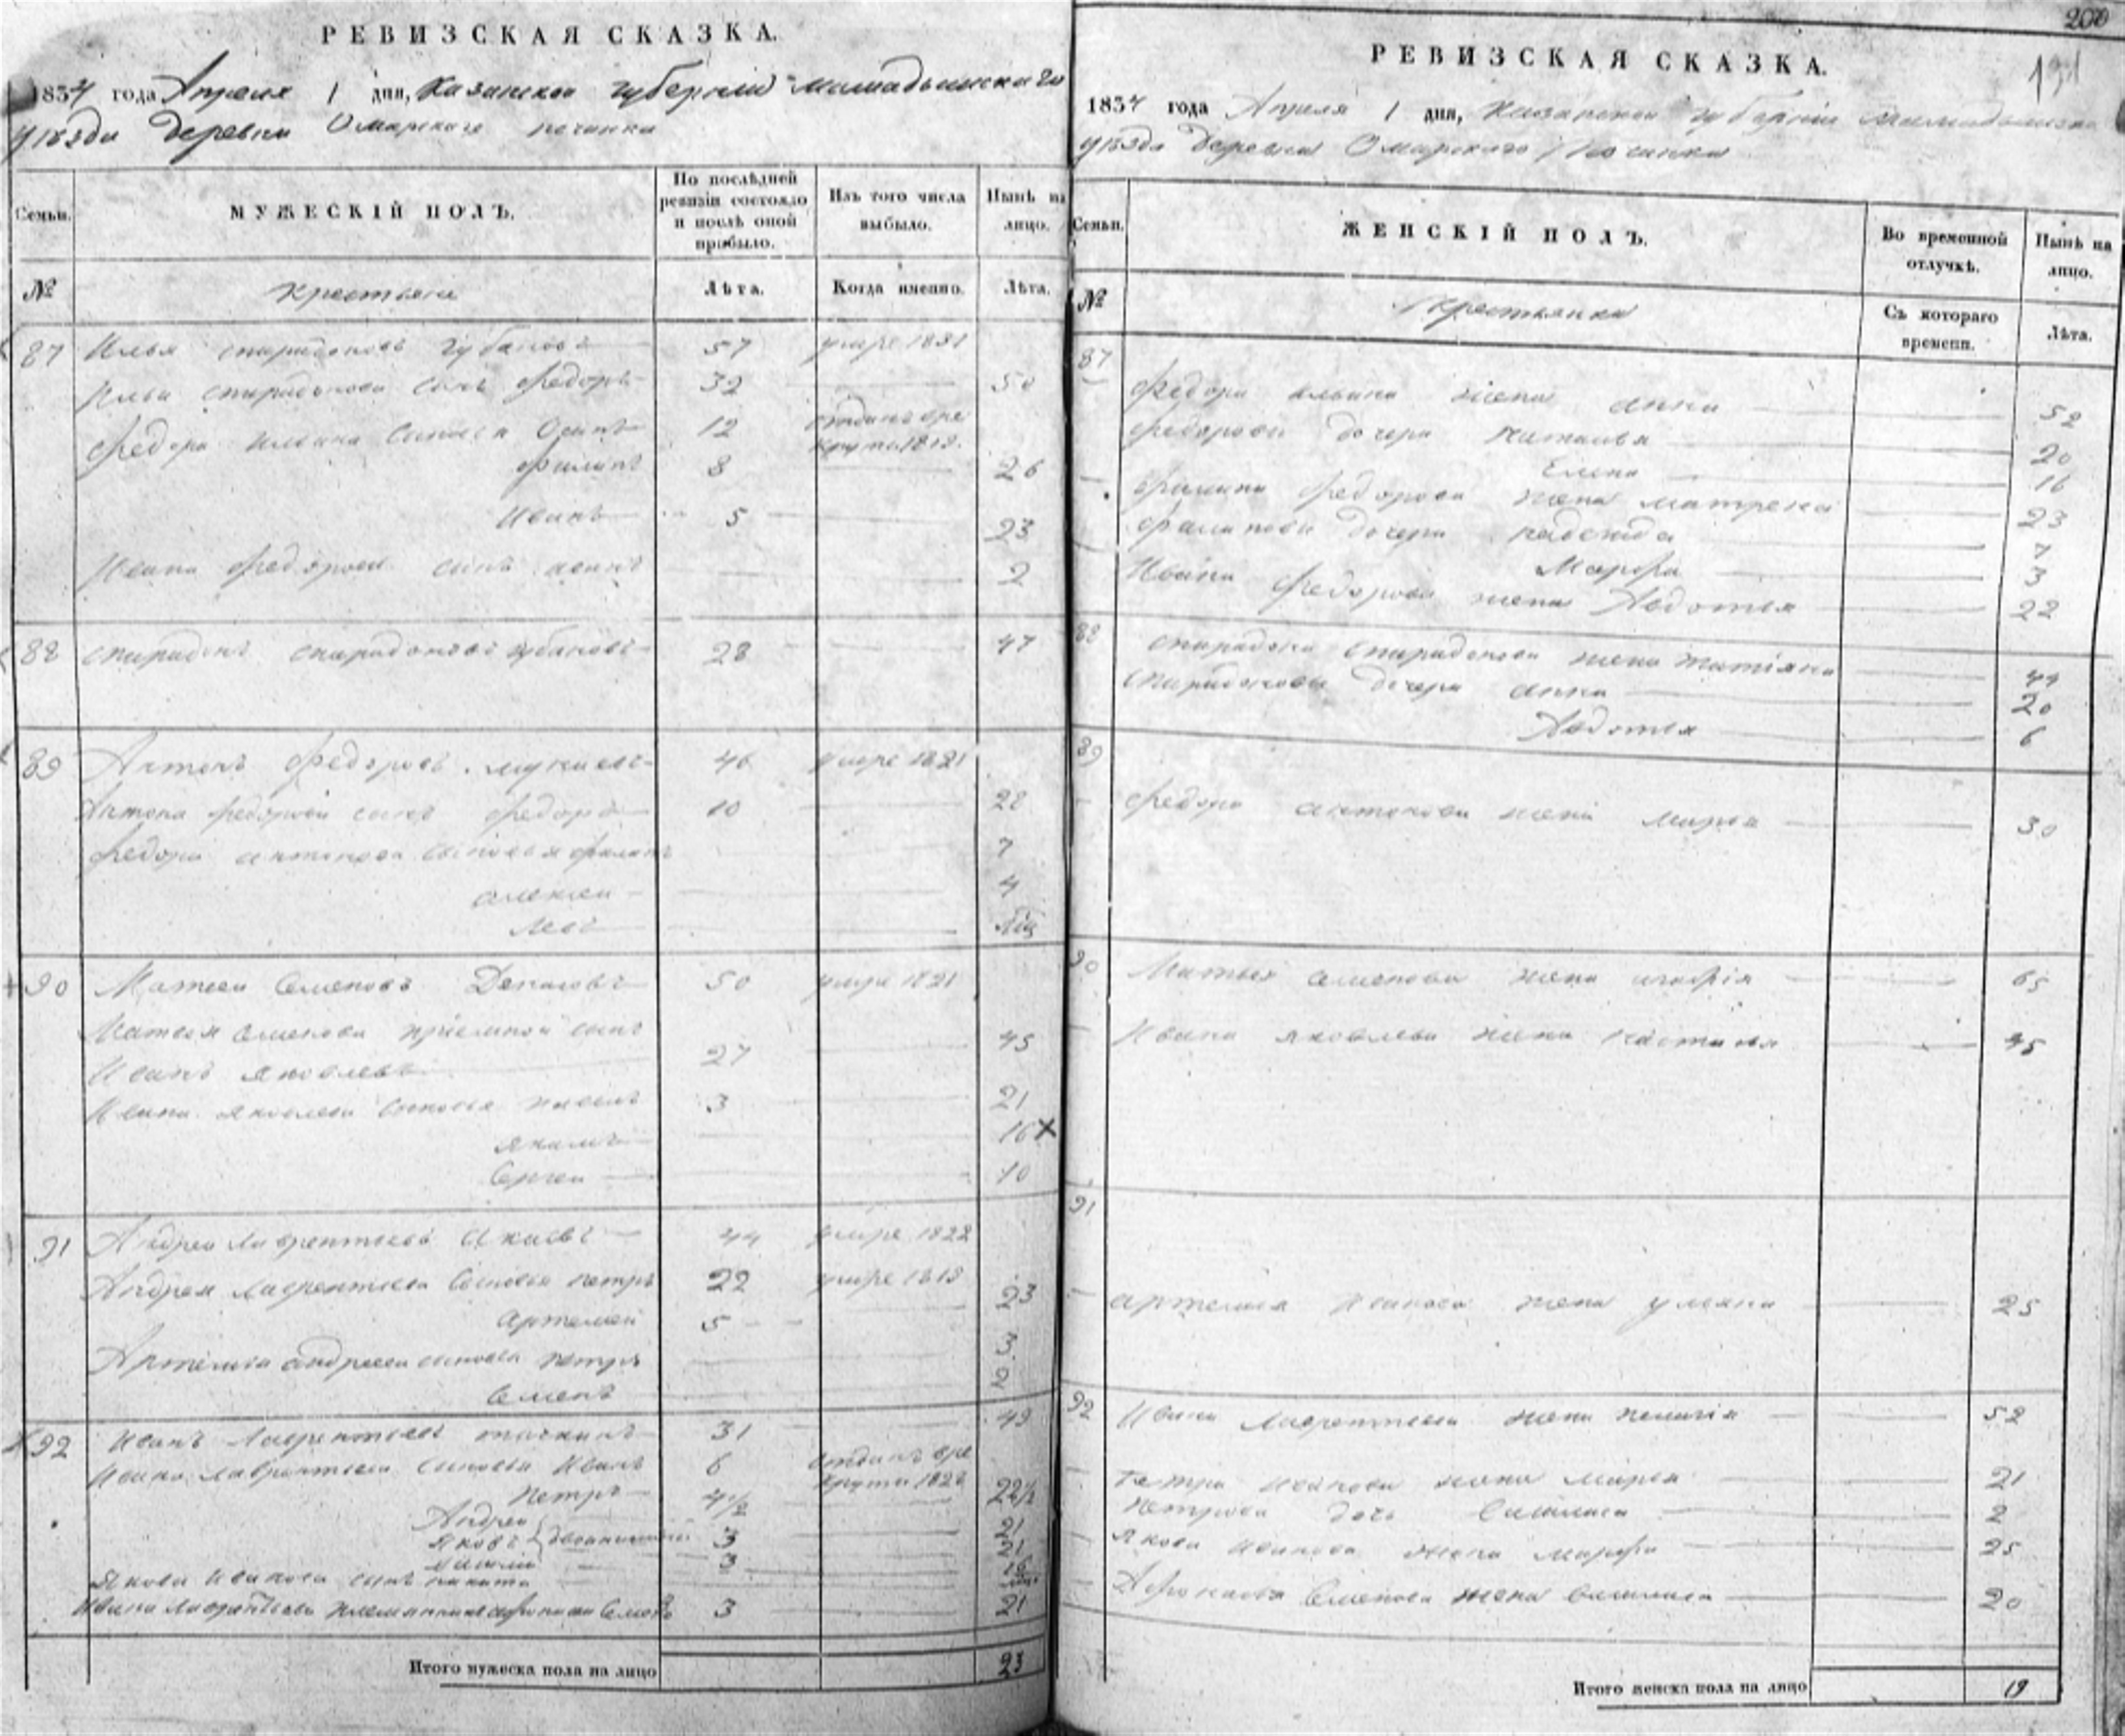 РЕВИЗСКАЯ СКАЗКА.
1834 года Апреля 1 дня, Казанской губернии Мамадышскаго
уѣзда деревни Омарскаго починка
Семьи.
МУЖЕСКІЙ ПОЛЪ.
По послѣдней ревизіи состояло и послѣ оной прибыло.
Изъ того числа выбыло.
Нынѣ на лицо.
№
Крестьяне
Лѣта.
Когда именно.
Лѣта.
87 Илья Спиридоновъ Губановъ 57 умре 1831
Ильи Спиридонова сынъ Федоръ 32 50
Федора Ильина сыновья Осипъ 12 отданъ в ре
круты 1818.
Филипъ 8 26
Иванъ 5 23
Ивана Федорова сынъ 2
88 Спиридонъ Спиридоновъ Губановъ 28 47
89 Антонъ Федоровъ 46 умре 1821
Антона Федорова сынъ Федоръ 10 28
Федора Антонова сыновья Филипъ 7
Алексей 4
Левъ
90 Матвей Семеновъ 50 умре 1821
Матвея Семенова приемной сынъ
Иванъ Яковлевъ 27 45
Ивана Яковлева сыновья Павелъ 3 21
Якимъ 16
Сергей 10
91 Андрей Лаврентьевъ 44 умре 1822
Андрея Лаврентьева сыновья Петръ 22 умре 1818
Артемей 5 23
Артемья Андреева сыновья Петръ 3
Семенъ 2
92 Иванъ Лаврентьевъ 31 49
Ивана Лаврентьева сыновья Иванъ 6 отданъ в ре
круты 1828
Петръ 4½ 22½
Андрей 3 21
Яковъ двоишники 3 21
Якова Иванова сынъ Никита
Ивана Лаврентьева племянникъ Афонасей Семеновъ 3 21
Итого мужеска пола на лицо 23
200
191
РЕВИЗСКАЯ СКАЗКА.
1834 года Апреля 1 дня, Казанской губерніи Мамадышска
уѣзда деревни Омарскаго Починка
Семьи.
ЖЕНСКІЙ ПОЛЪ.
Во временной отлучкѣ.
Нынѣ на лицо.
№
Крестьянки
Съ котораго времени.
Лѣта.
87
Федора Ильина жена Анна 52
Федоровы дочери Наталья 20
Елена 16
Филипа Федорова жена Матрена 23
Филиповы дочери Надежда 7
Марфа 3
Ивана Федорова жена Авдотья 22
88 Спиридона Спиридонова жена Татіяна 44
Спиридоновы дочери Анна 20
Авдотья 6
89
Федора Антонова жена Марья 30
90 Матвея Семенова жена 65
Ивана Яковлева жена Настасья 45
91
Артемья Иванова жена Ульяна 25
92 Ивана Лаврентьева жена Пелагія 52
Петра Иванова жена Марья 21
Петрова дочь Василиса 2
Якова Иванова жена Марфа 25
Афонасья Семенова жена Василиса 20
Итого женска пола на лицо 19